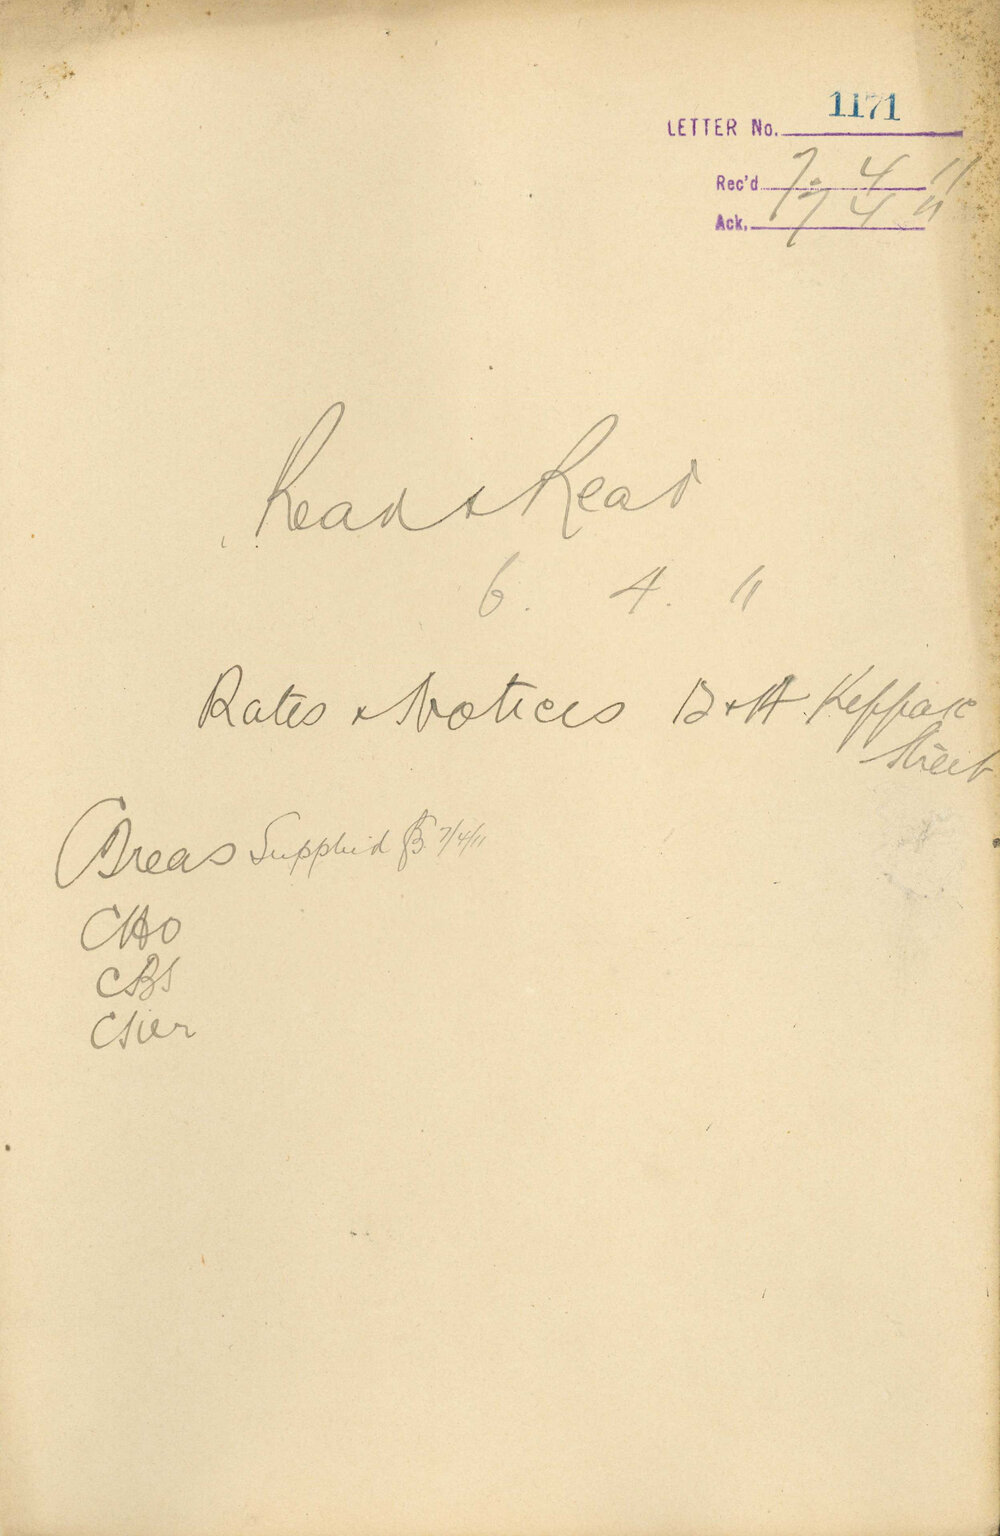 LETTER No. 1171
Rec'd 7. 4 11
Ack. 7 4 11
Read & Read
6. 4. 11
Rates & Notices B & H Keppare
Street
Supplied 7/4/11
CHO
CBS